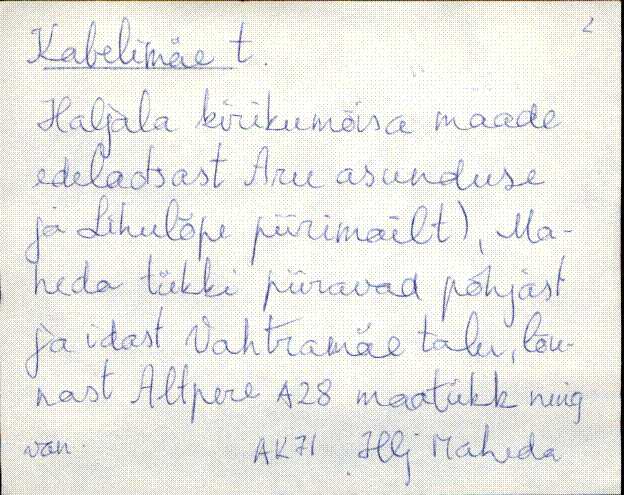 2
Kabelimäe t.
Haljala kirikumõisa maade
edelaotsast Aru asunduse
ja Lihulõpe piirimailt), Ma-
heda tükki piiravad põhjast
ja idast Vahtramäe talu, lõu-
nast Altpere A28 maatükk ning
van. AK71 Hlj Maheda